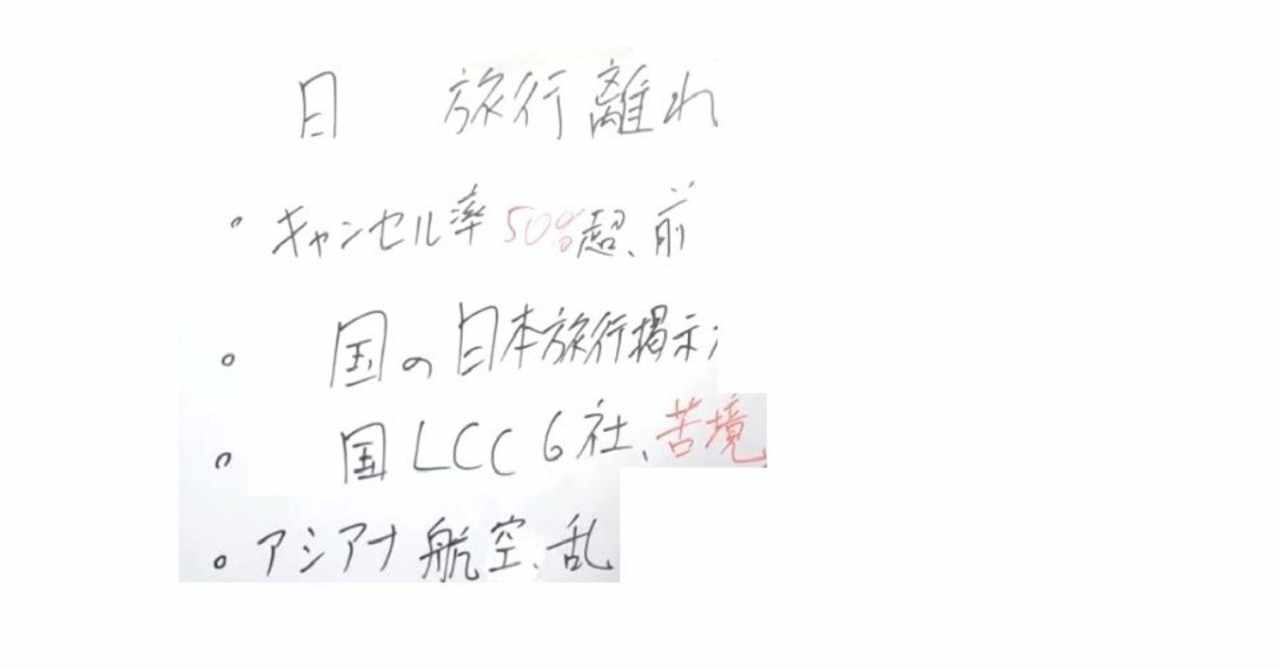 日 旅行離れ
・キャンセル率50%超、前
・ 国の日本旅行掲示
・ 国LCC6社、苦境
・アシアナ航空、乱